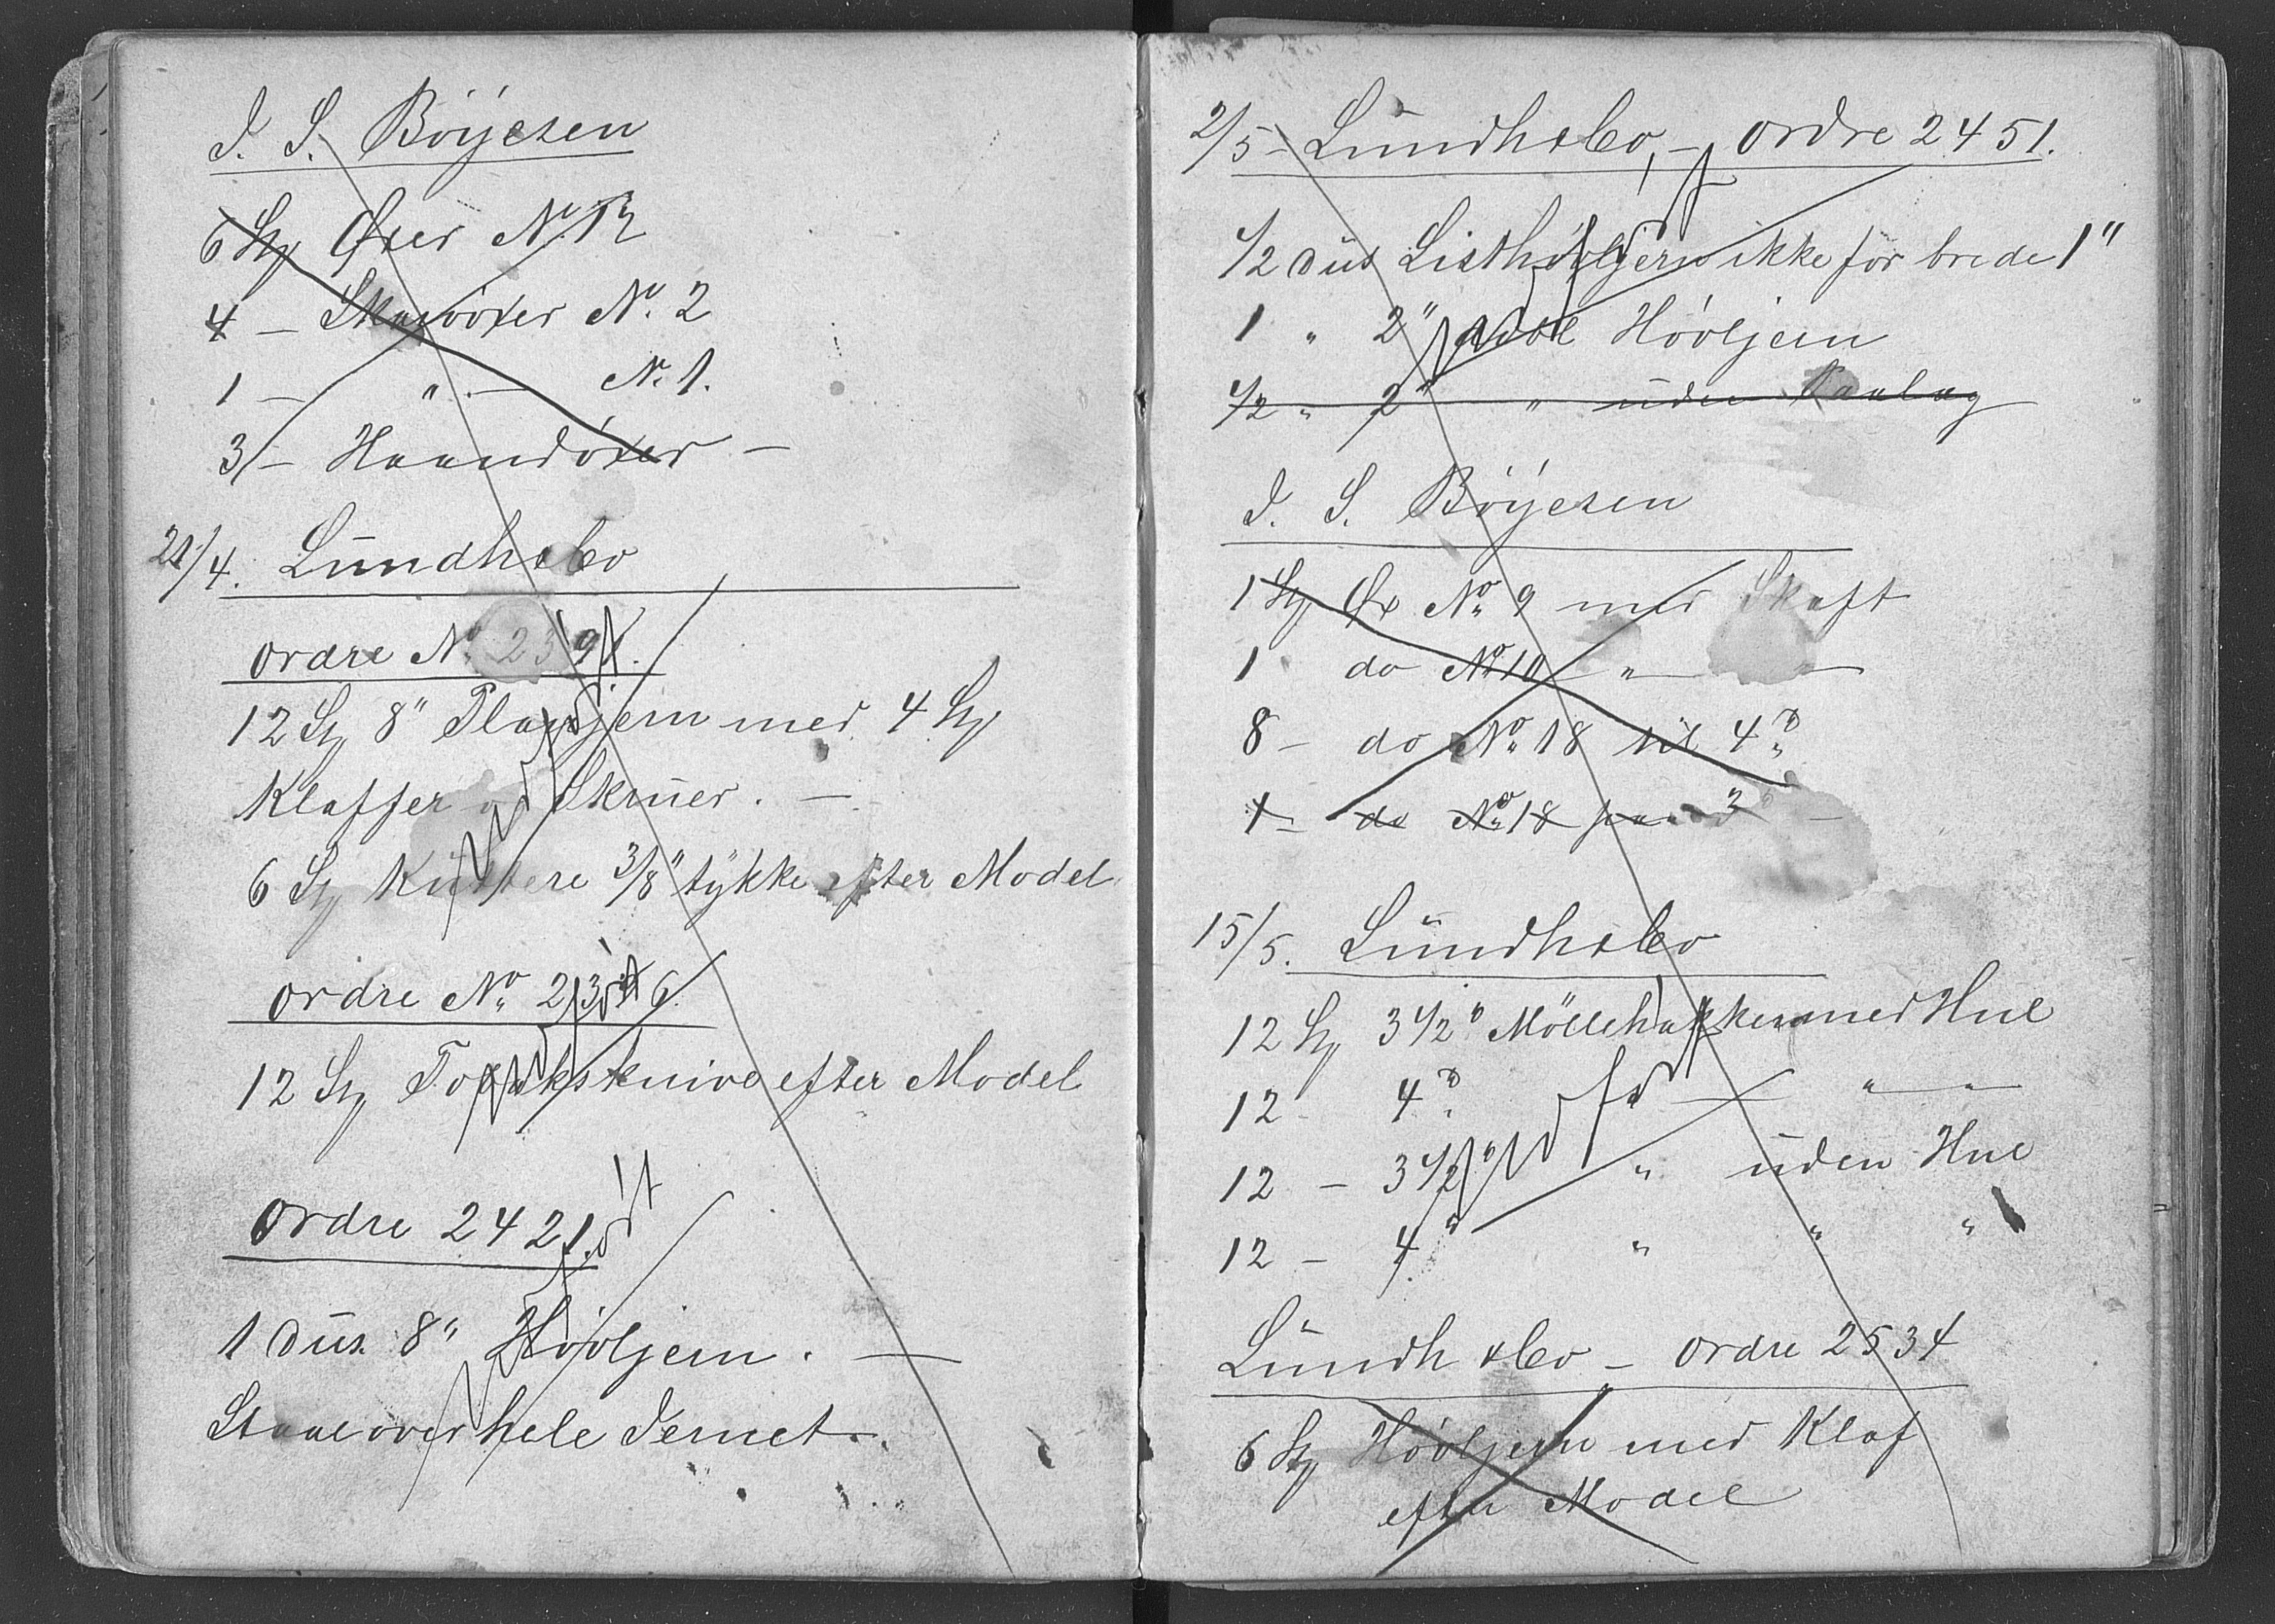 J. S. Böÿesen
6 Stÿ Øxer No. 12
4 — Skaröxer No. 2
1 — " — No. 1.
3 — Haandöxer —
21/4. Lundh & Co
ordre No. 239
12 Stÿ 8" Planjern med 4 Stÿ
Klaffer og Skruer. —
6 Stÿ Kuttere 3/8" tÿkke efter Model
ordre No. 23 6.
12 Stÿ Tobaksknive efter Model
ordre 2421.
1 Dus. 8" Hövljern. —
Staal over hele Jernet.
2/5 - Lundh & Co, - ordre 2451.
1/2 dus Listhövljern ikke för brede 1"
1 " 2" dobl Hövljern
1/2 " 2" " uden Paalag
J. S. Böÿesen
1 Stÿ Øx No. 9 med Skaft
1 do No 10 " —
8 — do No. 18 til 4"
1 — do No. 18 paa 3" —
15/5. Lundh & Co
12 Stÿ 3 1/2" Möllehakker med Hul
12 - 4" — " — "
12 — 3 1/2" " uden Hul
12 — 4" " " "
Lundh & Co — ordre 2534
6 Stÿ Hövljern med Klaf
efter Model